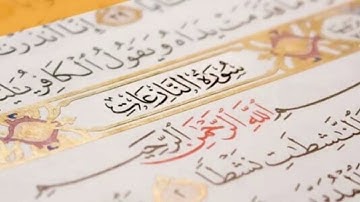 إِنَّا أَنذَرْنَا
مَا قَدَّمَتْ يَدَاهُ وَيَقُولُ الْكَافِرُ
سُورَةُ النَّازِعَاتِ
بِسْمِ اللَّهِ الرَّحْمَٰنِ الرَّحِيمِ
وَالنَّٰشِطَٰتِ نَشْطًا ٢